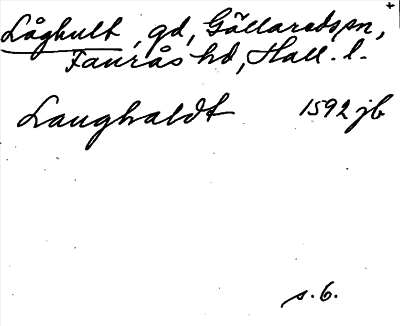 Låghult, gd, Gällaredssn,
Faurås hd, Hall. l.
Laughaldt 1592 jb
s. 6.